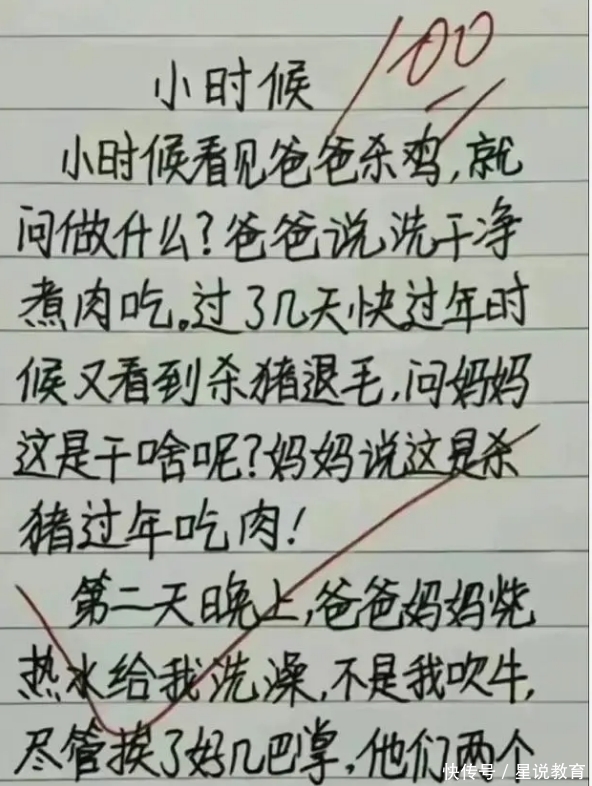 100
小时候
小时候看见爸爸杀鸡,就
问做什么?爸爸说洗干净
煮肉吃。过了几天快过年时
候又看到杀猪退毛,问妈妈
这是干啥呢?妈妈说这是杀
猪过年吃肉!
第二天晚上,爸爸妈妈烧
热水给我洗澡,不是我吹牛,
尽管挨了好几巴掌,他们两个
快传号/星说教育